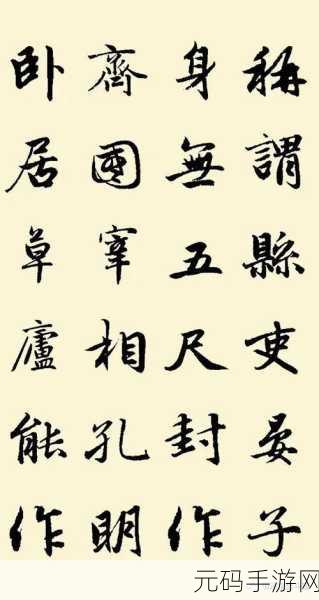 稱謂縣吏晏子
身無五尺封作
齊國宰相孔明
卧居草廬能作
元码手游网